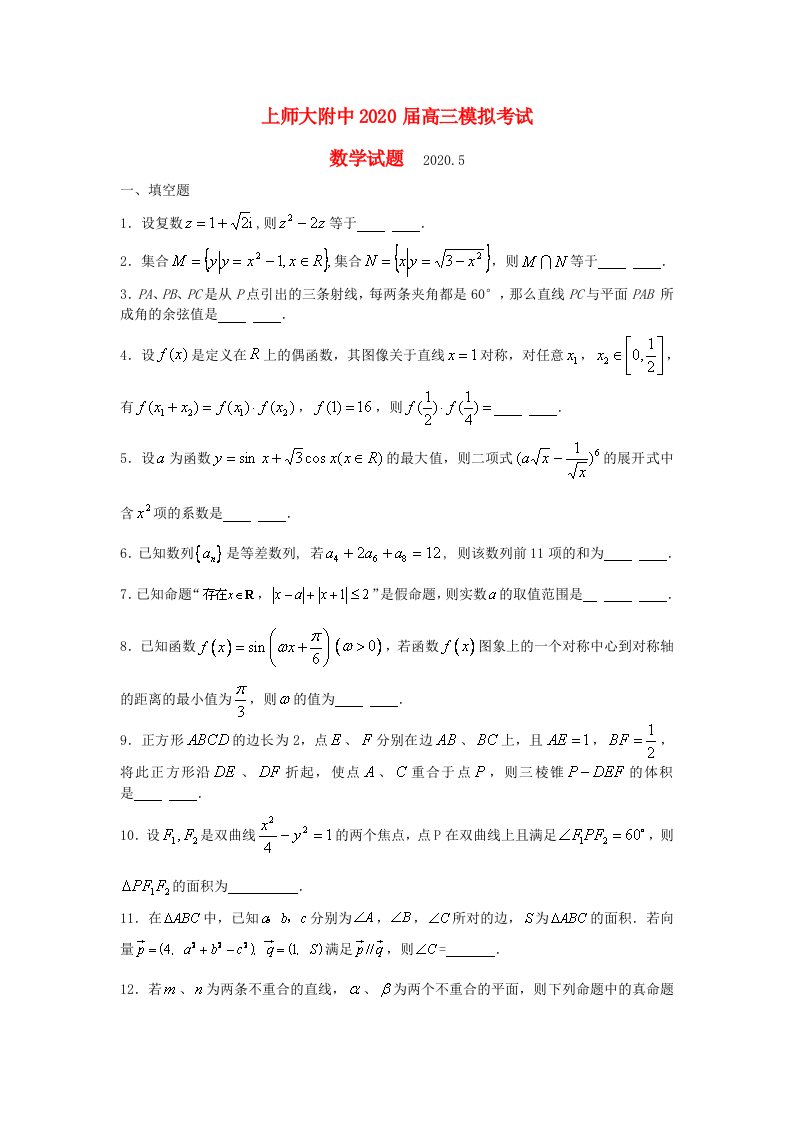 上师大附中 2020 届高三模拟考试
数学试题 2020.5
一、填空题
1．设复数 z = 1 + √2i ,则 z² − 2z 等于____ ____．
2．集合 M = {y|y = x² − 1, x ∈ R},集合 N = {x|y = √(3 − x²)}，则 M ∩ N 等于____ ____．
3．PA、PB、PC 是从 P 点引出的三条射线，每两条夹角都是 60°，那么直线 PC 与平面 PAB 所
成角的余弦值是____ ____．
4．设 f(x) 是定义在 R 上的偶函数，其图像关于直线 x = 1 对称，对任意 x₁，x₂ ∈ [0, 1/2]，
有 f(x₁ + x₂) = f(x₁) · f(x₂)，f(1) = 16，则 f(1/2) · f(1/4) =____ ____．
5．设 a 为函数 y = sin x + √3 cos x(x ∈ R) 的最大值，则二项式 (a√x − 1/√x)⁶ 的展开式中
含 x² 项的系数是____ ____．
6．已知数列 {aₙ} 是等差数列, 若 a₄ + 2a₆ + a₈ = 12, 则该数列前 11 项的和为____ ____．
7．已知命题“存在 x ∈ R，|x − a| + |x + 1| ≤ 2”是假命题,则实数 a 的取值范围是__ ____ ____．
8．已知函数 f(x) = sin(ωx + π/6) (ω > 0)，若函数 f(x) 图象上的一个对称中心到对称轴
的距离的最小值为 π/3，则 ω 的值为____ ____．
9．正方形 ABCD 的边长为 2，点 E 、F 分别在边 AB 、BC 上，且 AE = 1，BF = 1/2，
将此正方形沿 DE 、DF 折起，使点 A 、C 重合于点 P，则三棱锥 P − DEF 的体积
是____ ____．
10．设 F₁, F₂ 是双曲线 x²/4 − y² = 1 的两个焦点，点 P 在双曲线上且满足 ∠F₁PF₂ = 60°，则
ΔPF₁F₂ 的面积为__________．
11．在 ΔABC 中，已知 a，b，c 分别为 ∠A，∠B，∠C 所对的边，S 为 ΔABC 的面积．若向
量 p⃗ = (4, a² + b² − c²), q⃗ = (1, S) 满足 p⃗ // q⃗，则 ∠C =_______．
12．若 m 、n 为两条不重合的直线，α 、β 为两个不重合的平面，则下列命题中的真命题